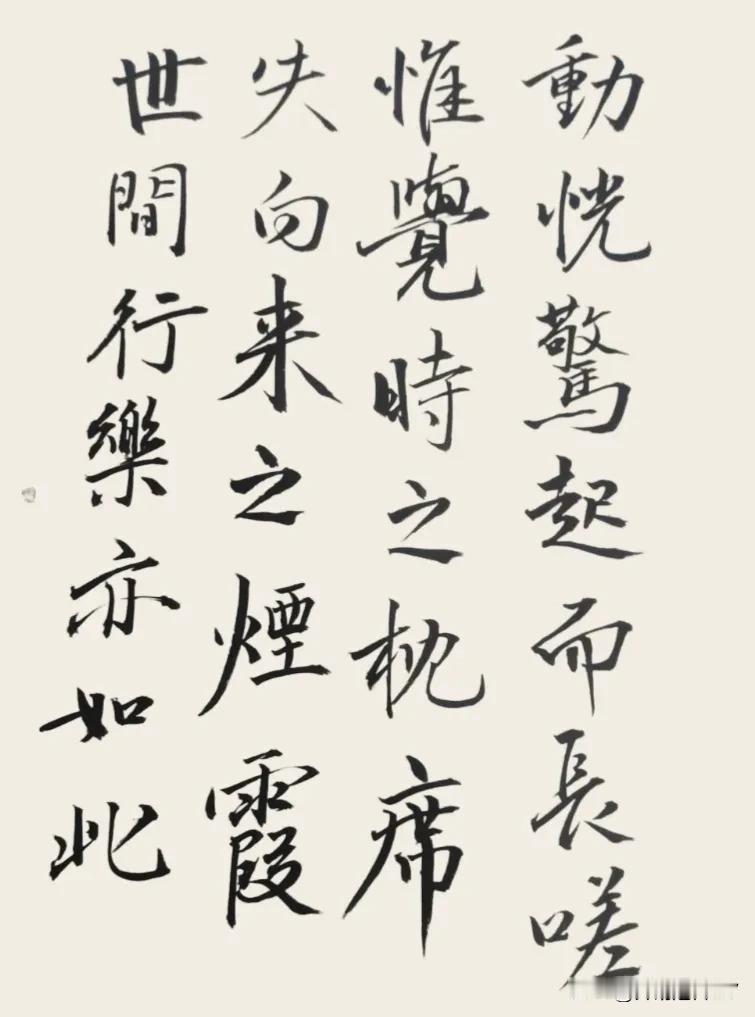 動恍驚起而長嗟
惟覺時之枕席
失向来之煙霞
世間行樂亦如此